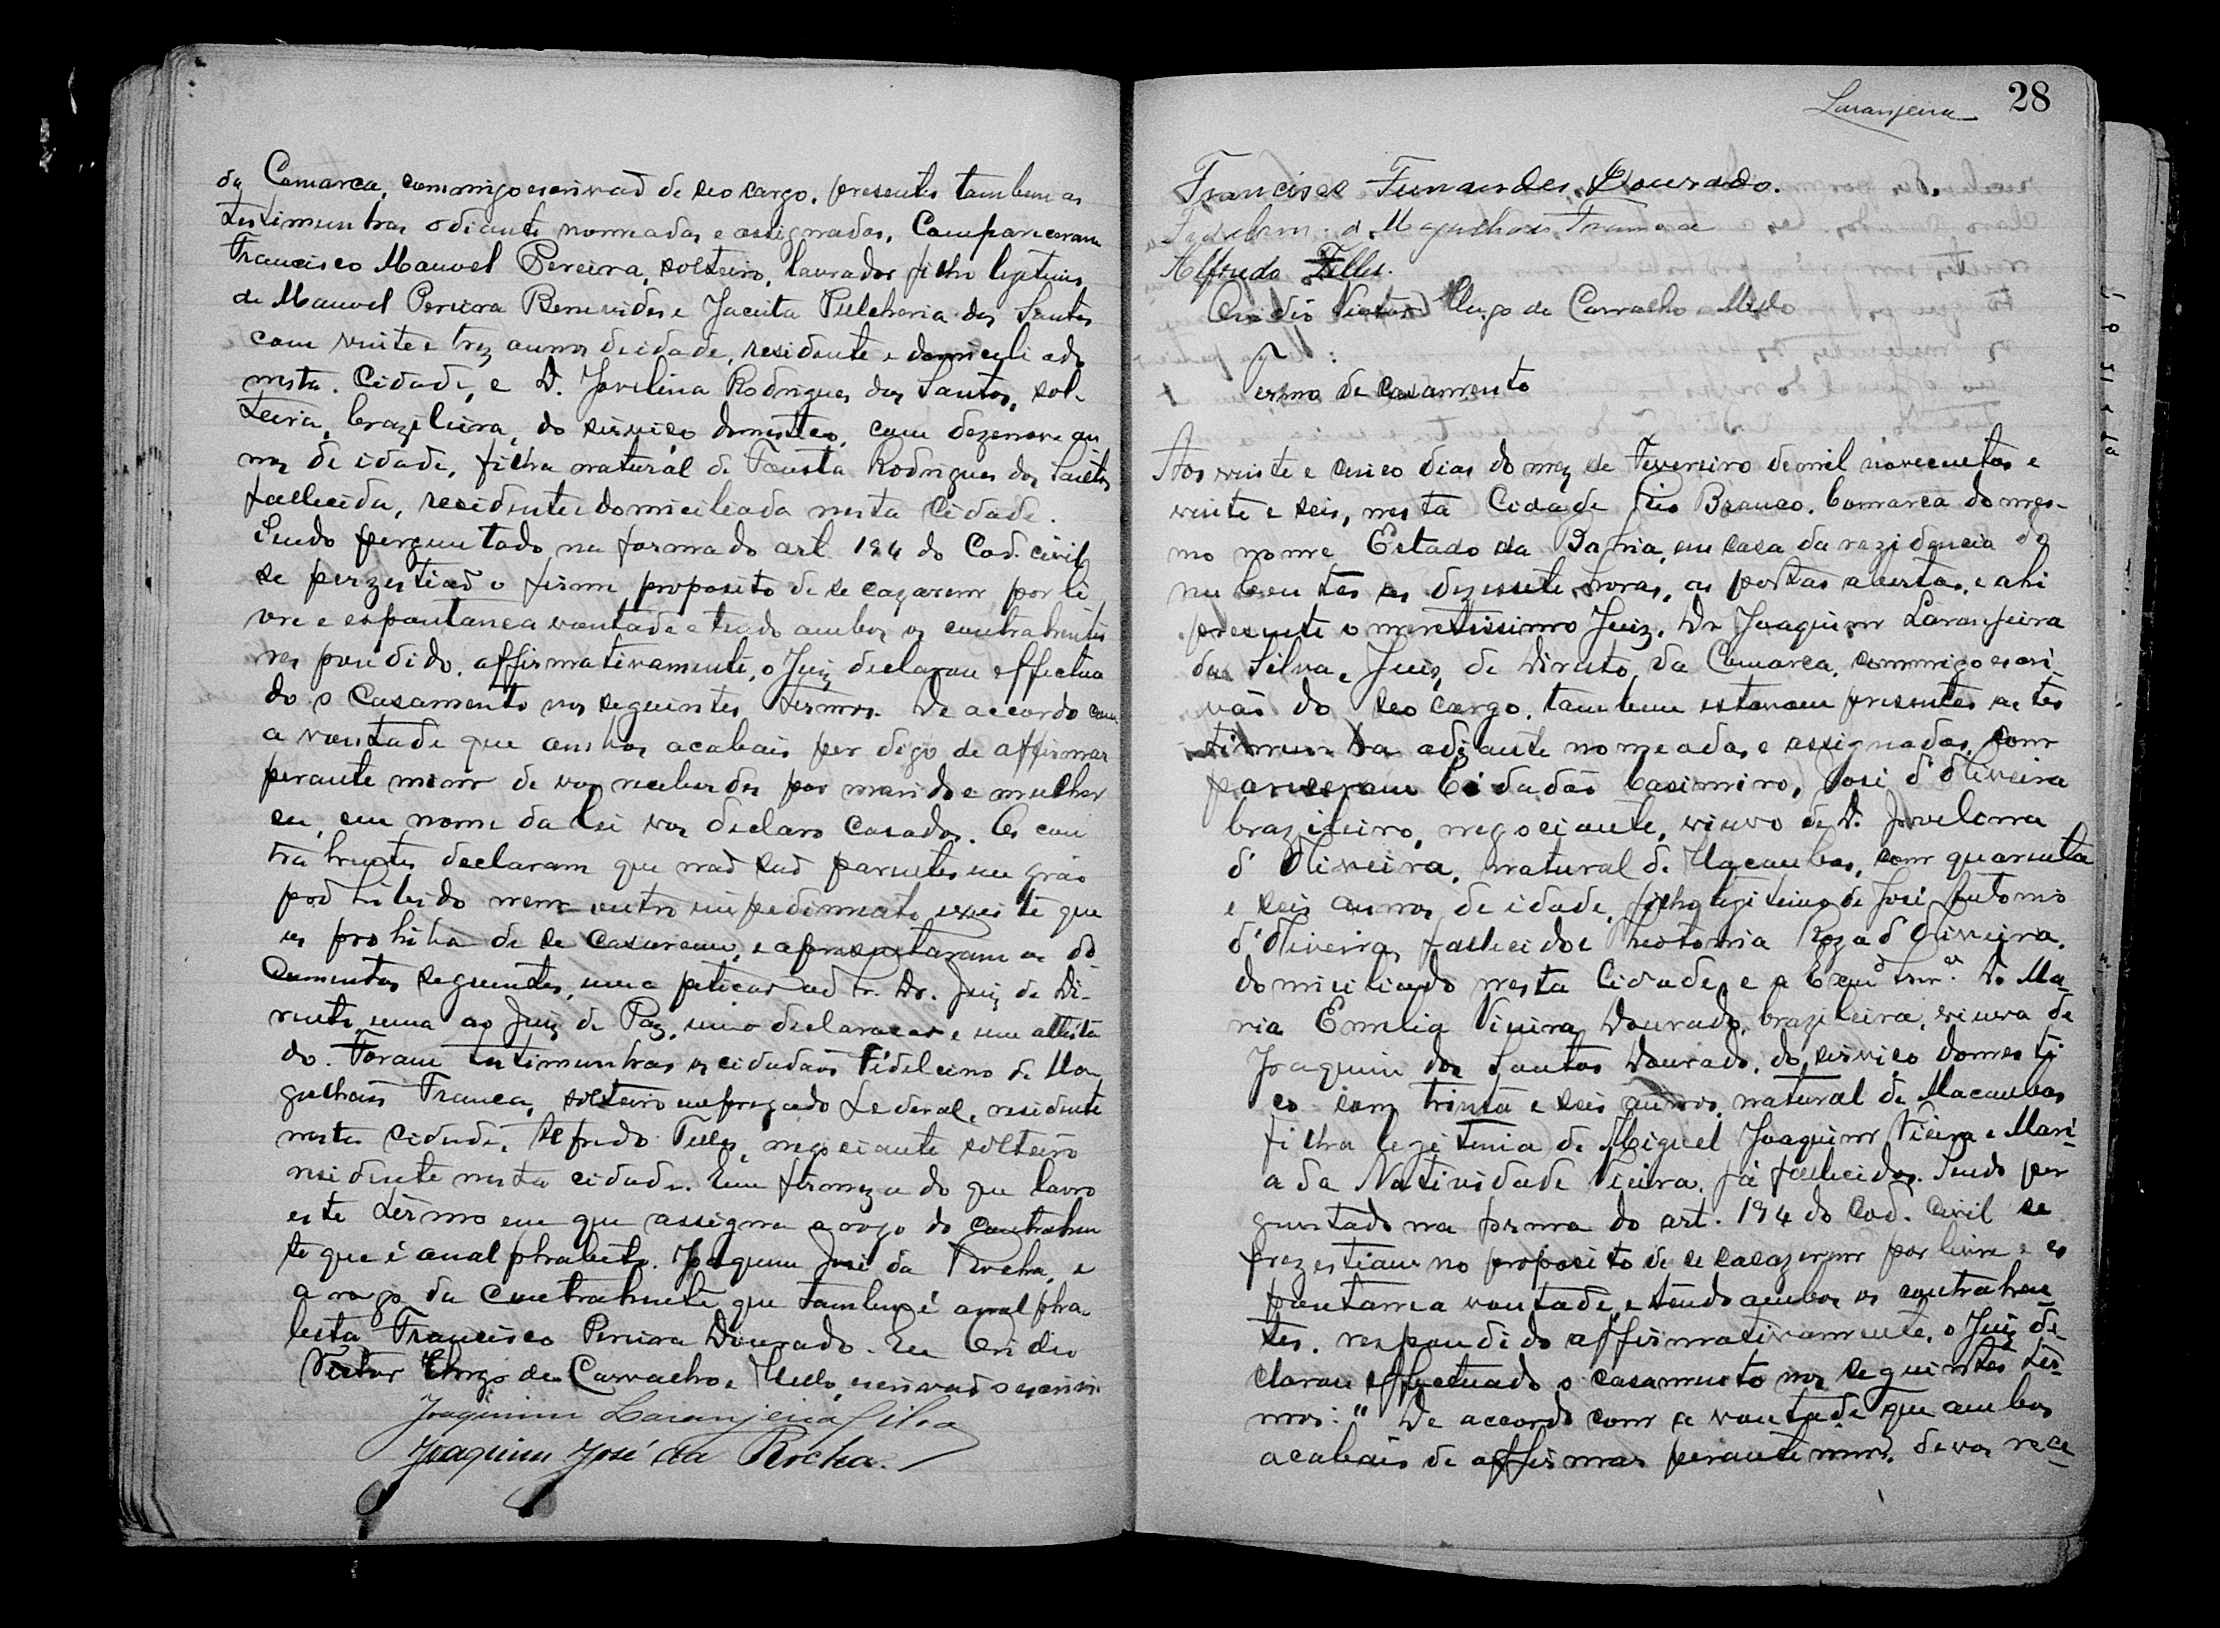 da Comarca, commigo escrivaõ de seo cargo, presentes tambem as
testimunhas adiante nomeadas e assignadas. Compareceram
Francisco Manoel Pereira, solteiro, lavrador filho legitimo
de Manoel Pereira Benevides e Jacinta Pulcheria dos Santos
com vinte e trez annos de idade, residente e domicili ado
nesta Cidade, e D. Jovelina Rodrigues dos Santos, sol-
teira, brazileira, do serviço domestico, com dezenove an
nos de idade, filha natural de Fausta Rodrigues dos Santos
fallecida, residente e domiciliada nesta Cidade.
Sendo perguntado na forma do art. 194 do Cod. civil
se perzestiaõ o firme proposito de se cazarem por li
vre e espontanea vontade e tendo ambos os contrahentes
res pondido affirmativamente, o Juiz declarou effectua
do o Casamento nos seguintes termos. De accordo com
a vontade que ambos acabais per digo de affirmar
perante mim de vos receberdes por marido e mulher
eu, em nome da lei vos declaro casados. Os con
tra hentes declaram que naõ saõ parentes em gráo
prohibido nem outro impedimento existe que
os prohiba de se casarem, e apresentaram os do
cumentos seguintes, uma petiçaõ ao Sr. Dr. Juiz de Di-
reito, uma ao Juiz de Paz, uma declaraçaõ e um attesta
do. Foram testimunhas os cidadãos Fidelcino de Ma
galhães Franca, solteiro empregado Federal, residente
nesta cidade, Alfredo Telles, negociante solteiro
residente nesta cidade. Em firmeza do que lavro
este termo em que assigna a rogo do contrahen
te que é analphabeto. Joaquim José da Rocha, e
a rogo da contrahente que tambem é analpha
beta Francisco Pereira Dourado. Eu Ovidio
Victor Hugo de Carvalho e Mello, escrivaõ o escrevi
Joaquim Laranjeira Silva
Joaquim José da Rocha.
Laranjeira 28
Francisco Fernandes Dourado.
de Magalhães Franca
Alfredo Telles.
Ovidio Victor Hugo de Carvalho Mello
Termo de casamento
Aos vinte e cinco dias do mez de Fevereiro de mil novecentos e
vinte e seis, nesta Cidade Rio Branco, Comarca do mes-
mo nome Estado da Bahia, em casa da rezidencia do
nubentes as dezesete horas, as portas abertas, e ahi
presente o meretissimo Juiz, Dr Joaquim Laranjeira
da Silva, Juiz, de Direito da Comarca, commigo escri
vaõ do seo cargo, tambem estavam presentes as tes
timunha adiante nomeadas e assignadas, com
pareceram Cidadaõ Casimiro José d'Oliveira
brazileiro, negociante, viuvo de D. Jovelina
d'Oliveira, natural de Macaubas, com quarenta
e seis annos de idade, filho legitimo de José Antonio
d'Oliveira, fallecido e Roza d'Oliveira,
domiciliado nesta Cidade, e a Exmª Snrª. D. Ma-
ria Emilia Vieira Dourado, brazileira, viuva de
Joaquim dos Santos Dourado, do serviço domesti
co com trinta e seis annos, natural de Macaubas
filha legitima de Miguel Joaquim Vieira e Mari-
a da Natividade Vieira, já fallecidos. Sendo per
guntado na forma do art. 194 do Cod. Civil se
prezestiam no proposito de se casazerem por livre e es
pontanea vontade, e tendo ambos os contrahen
tes, respondido affirmativamente, o Juiz de-
clarou effectuado o casamento nos seguintes ter-
mos: "De accordo com a vontade que ambos
acabais de affirmar perante mim, de vos rece-